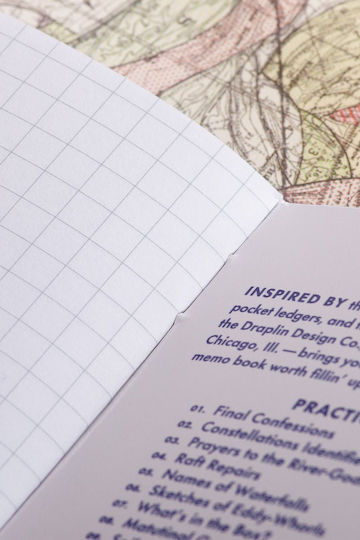 INSPIRED BY
pocket ledgers, and
the Draplin Design Co.
Chicago, Ill. — brings
memo book worth fillin' up
PRACTI
01. Final Confessions
02. Constellations Identifie
03. Prayers to the River-God
04. Raft Repairs
05. Names of Waterfalls
06. Sketches of Eddy-Whorls
07. What's in the Box?
08. Matutinal